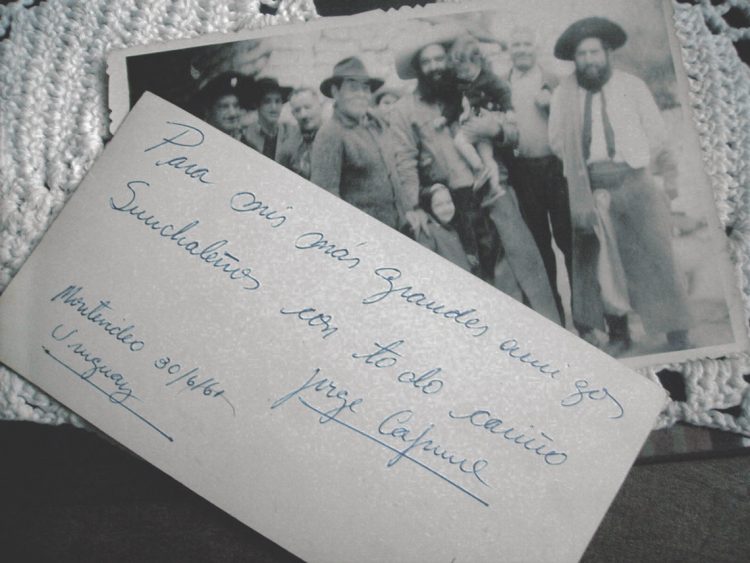 Para mis más grandes amigos
Sunchaleños con todo cariño
Jorge Cafrune
Montevideo 30/6/61
Uruguay